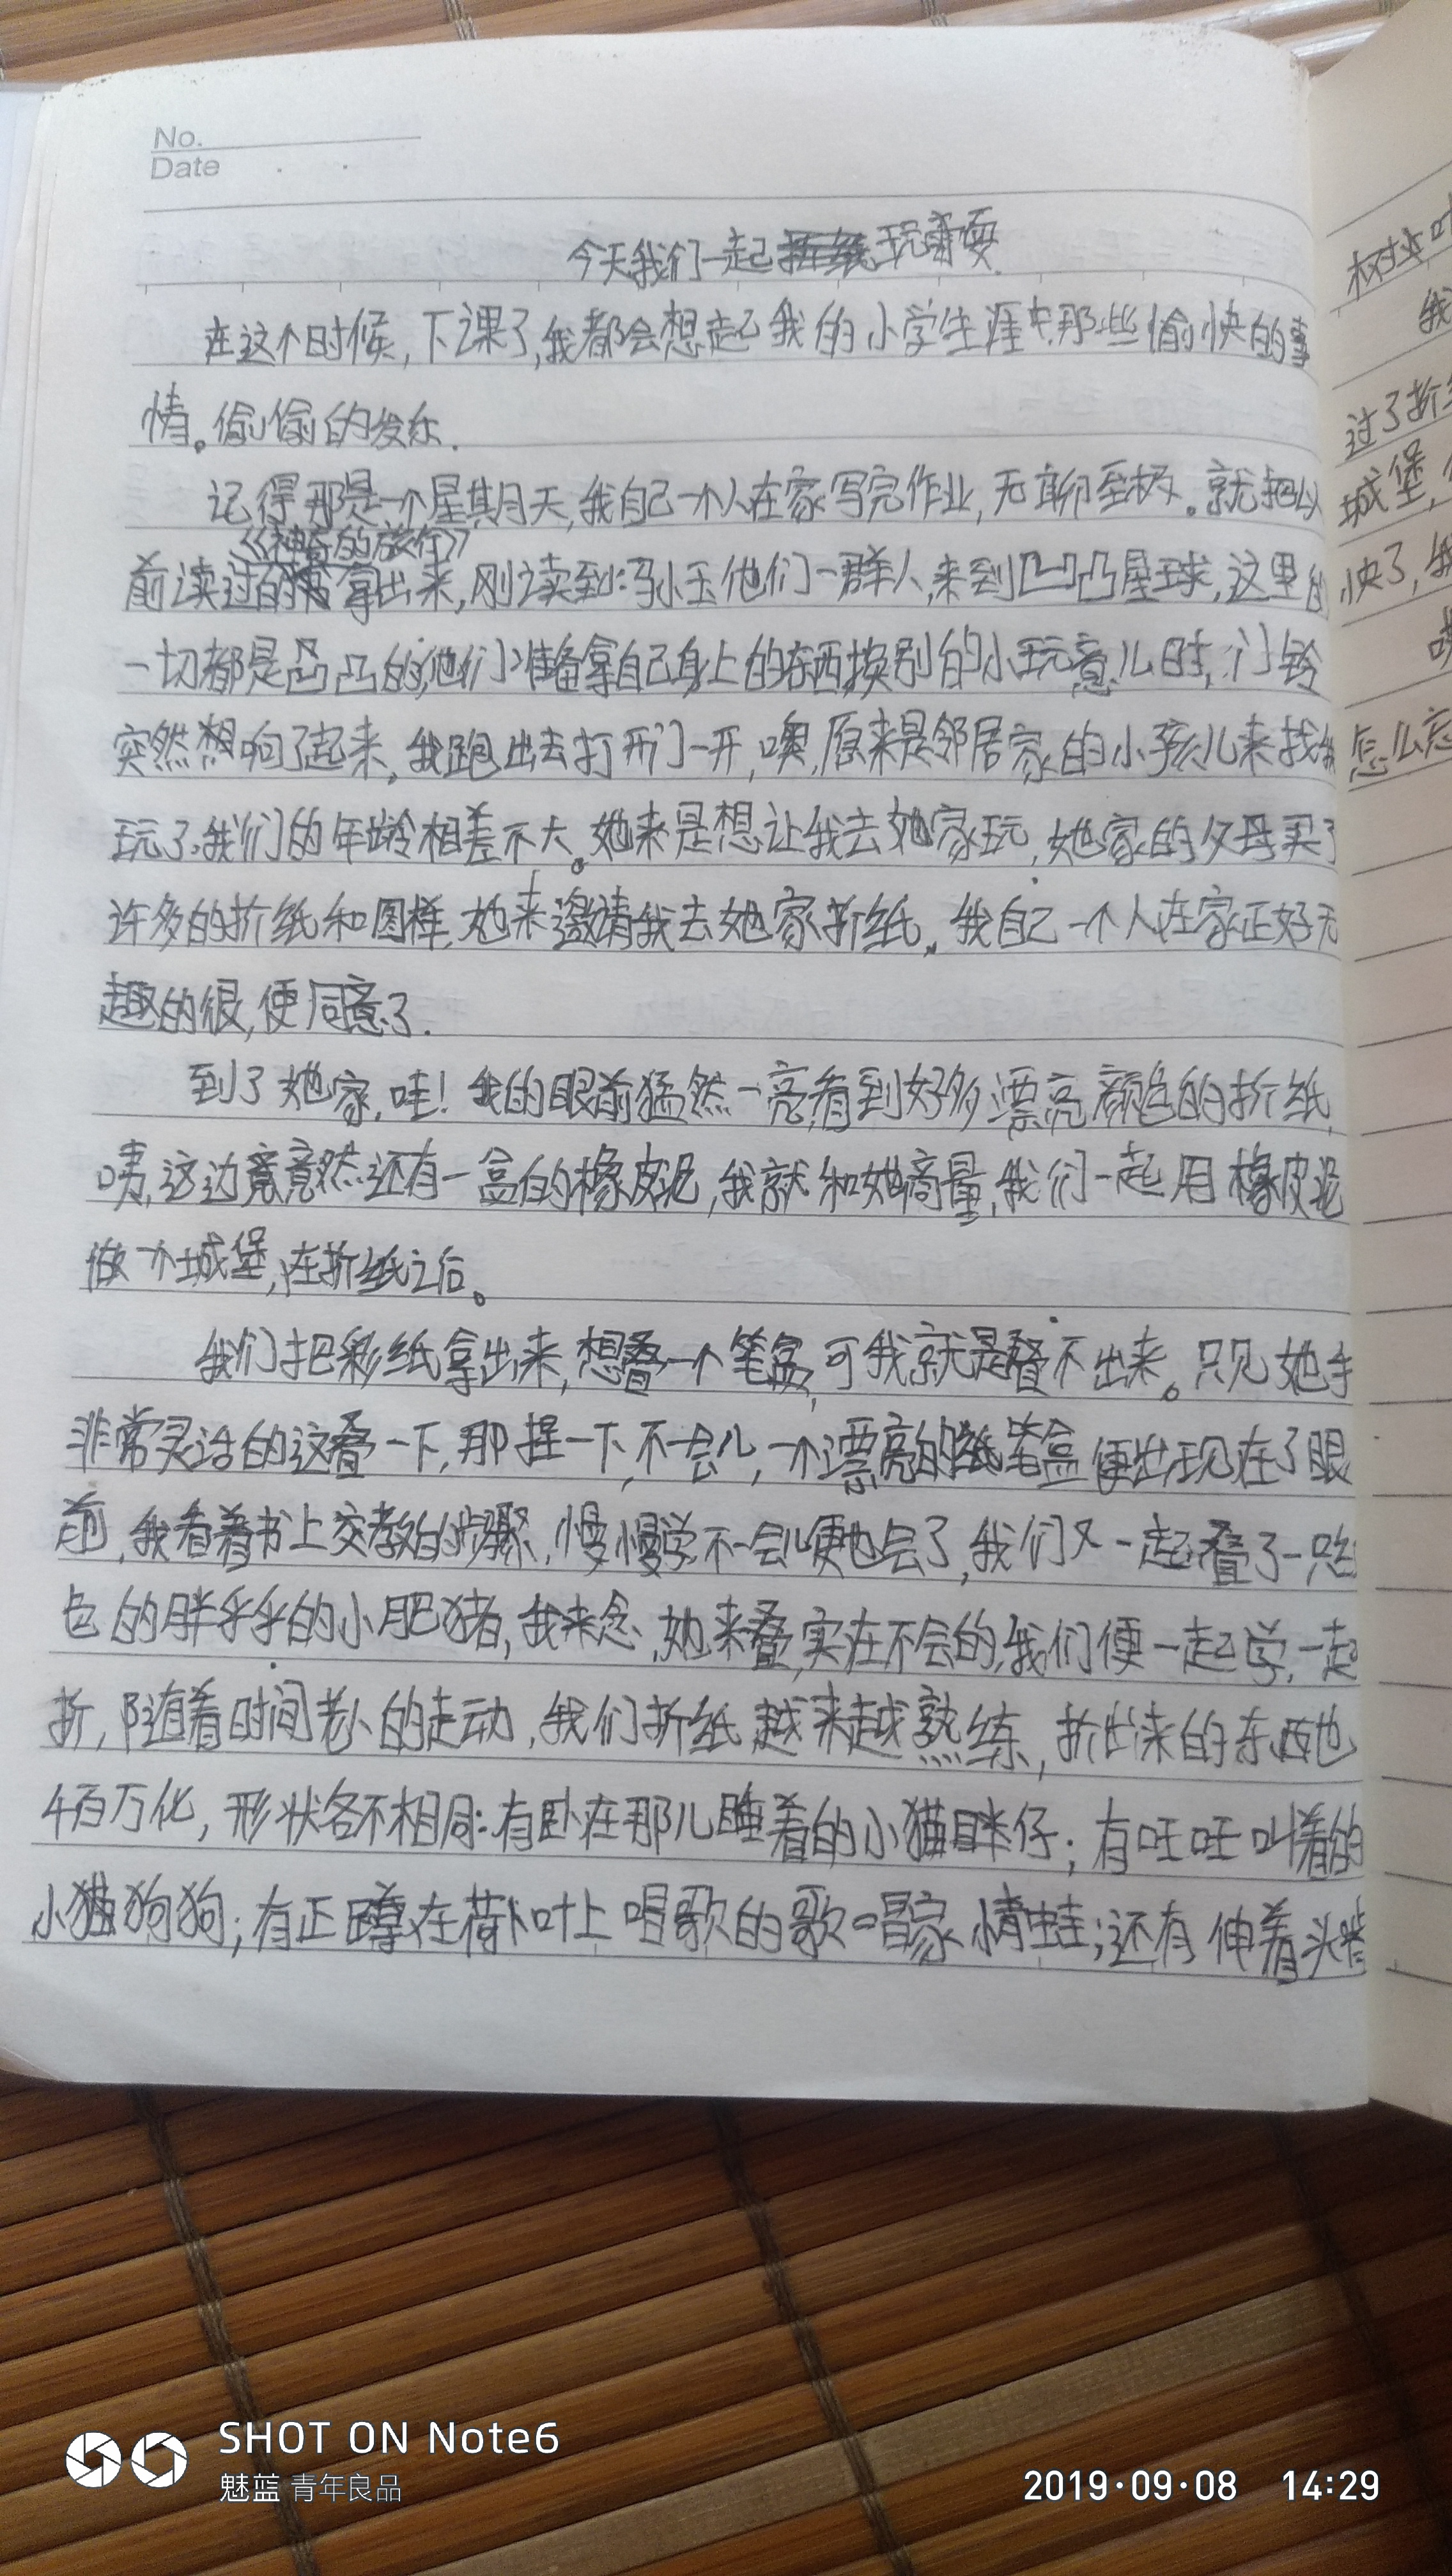 No.
Date
今天我们一起玩耍
在这个时候,下课了,我都会想起我的小学生涯中那些愉快的事
情。偷偷的发乐.
记得那是一个星期月天,我自己一个人在家写完作业,无聊至极。就把以
《神奇的旅行》
前读过的书拿出来,刚读到:冯小玉他们一群人,来到凹凸星球,这里的
一切都是凹凸的,他们准备拿自己身上的东西换别的小玩意儿时,门铃
突然想响了起来,我跑出去打开门一开,噢,原来是邻居家的小孩儿来找我
玩了.我们的年龄相差不大。她来是想让我去她家玩,她家的父母买了
许多的折纸和图样,她来邀请我去她家折纸。我自己一个人在家正好无
趣的很,便同意了.
到了她家,哇!我的眼前猛然一亮,看到好多漂亮颜色的折纸,
咦,这边竟竟然还有一盒的橡皮泥,我就和她商量,我们一起用橡皮泥
做一个城堡,在折纸之后。
我们把彩纸拿出来,想叠一个笔盒,可我就是叠不出来。只见她手
非常灵活的这叠一下,那捏一下,不一会儿,一个漂亮的纸笔盒便出现在了眼
前,我看着书上交教的步骤,慢慢学不一会儿便也会了,我们又一起叠了一只
色的胖乎乎的小肥猪,我来念,她来叠,实在不会的,我们便一起学,一起
折,随着时间老人的走动,我们折纸越来越熟练,折出来的东西也
千百万化,形状各不相同:有卧在那儿睡着的小猫眯仔;有旺旺叫着的
小猫狗狗;有正蹲在荷叶上唱歌的歌唱家情蛙;还有伸着头
树
我
过了折
城堡,
快了,我
怎么忘
SHOT ON Note6
魅蓝 青年良品
2019·09·08 14:29